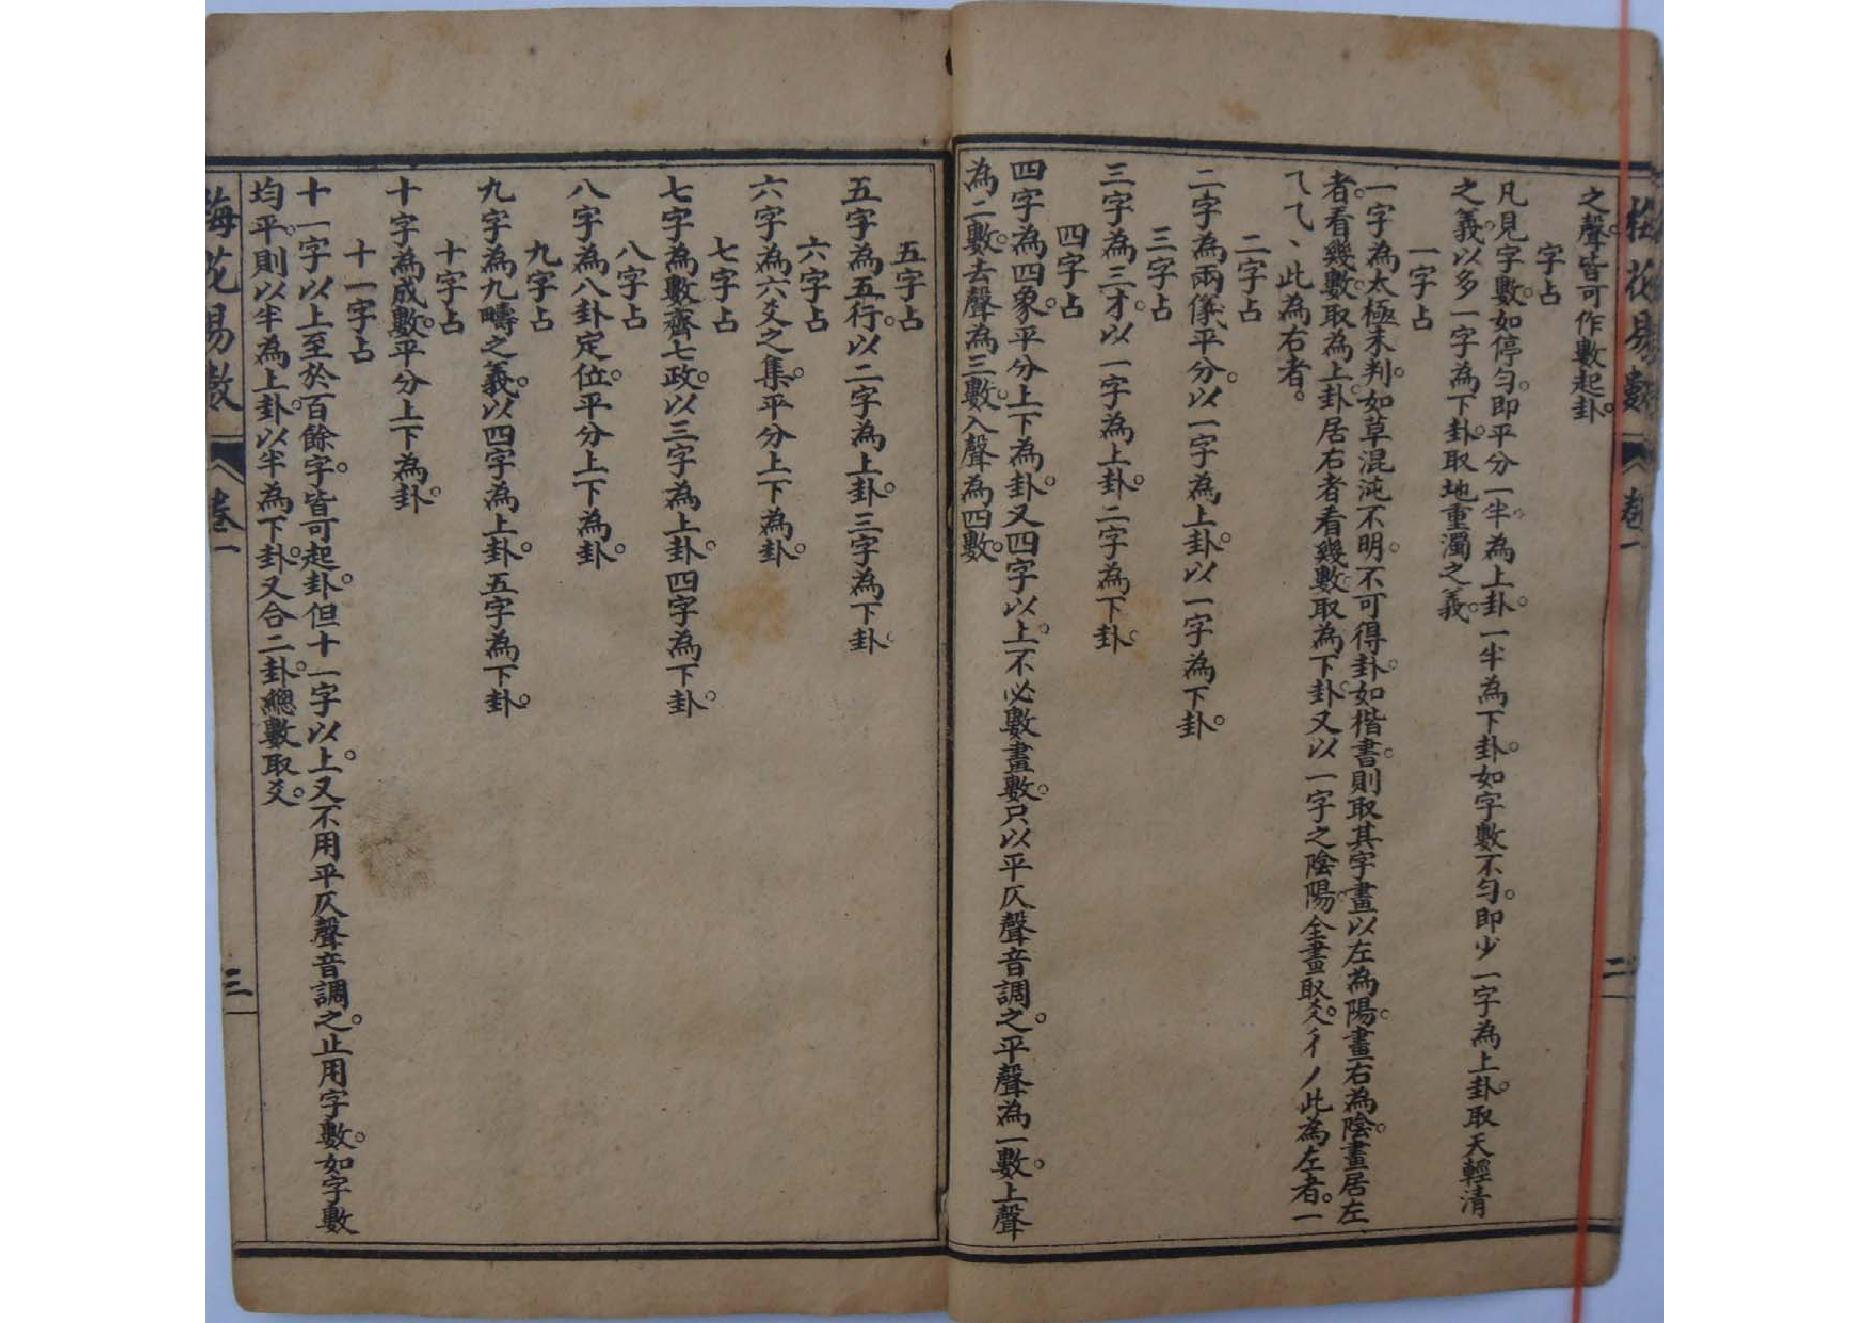 梅花易數
卷一
二
之聲。皆可作數起卦。
字占
凡見字數。如停勻。即平分一半為上卦。一半為下卦。如字數不勻。即少一字為上卦。取天輕清
之義。以多一字為下卦。取地重濁之義。
一字占
一字為太極未判。如草混沌不明。不可得卦。如楷書。則取其字畫。以左為陽畫。右為陰畫。居左
者。看幾數。取為上卦。居右者看幾數。取為下卦。又以一字之陰陽。全畫取爻。彳丿此為左者。一
乁乁丶此為右者。
二字占
二字為兩儀平分。以一字為上卦。以一字為下卦。
三字占
三字為三才。以一字為上卦。二字為下卦。
四字占
四字為四象。平分上下為卦。又四字以上。不必數畫數。只以平仄聲音調之。平聲為一數。上聲
為二數。去聲為三數。入聲為四數。
五字占
五字為五行。以二字為上卦。三字為下卦。
六字占
六字為六爻之集。平分上下為卦。
七字占
七字為數齊七政。以三字為上卦。四字為下卦。
八字占
八字為八卦定位。平分上下為卦。
九字占
九字為九疇之義。以四字為上卦。五字為下卦。
十字占
十字為成數。平分上下為卦。
十一字占
十一字以上至於百餘字。皆可起卦。但十一字以上。又不用平仄聲音調之。止用字數。如字數
均平。則以半為上卦。以半為下卦。又合二卦。總數取爻。
梅花易數
卷一
三